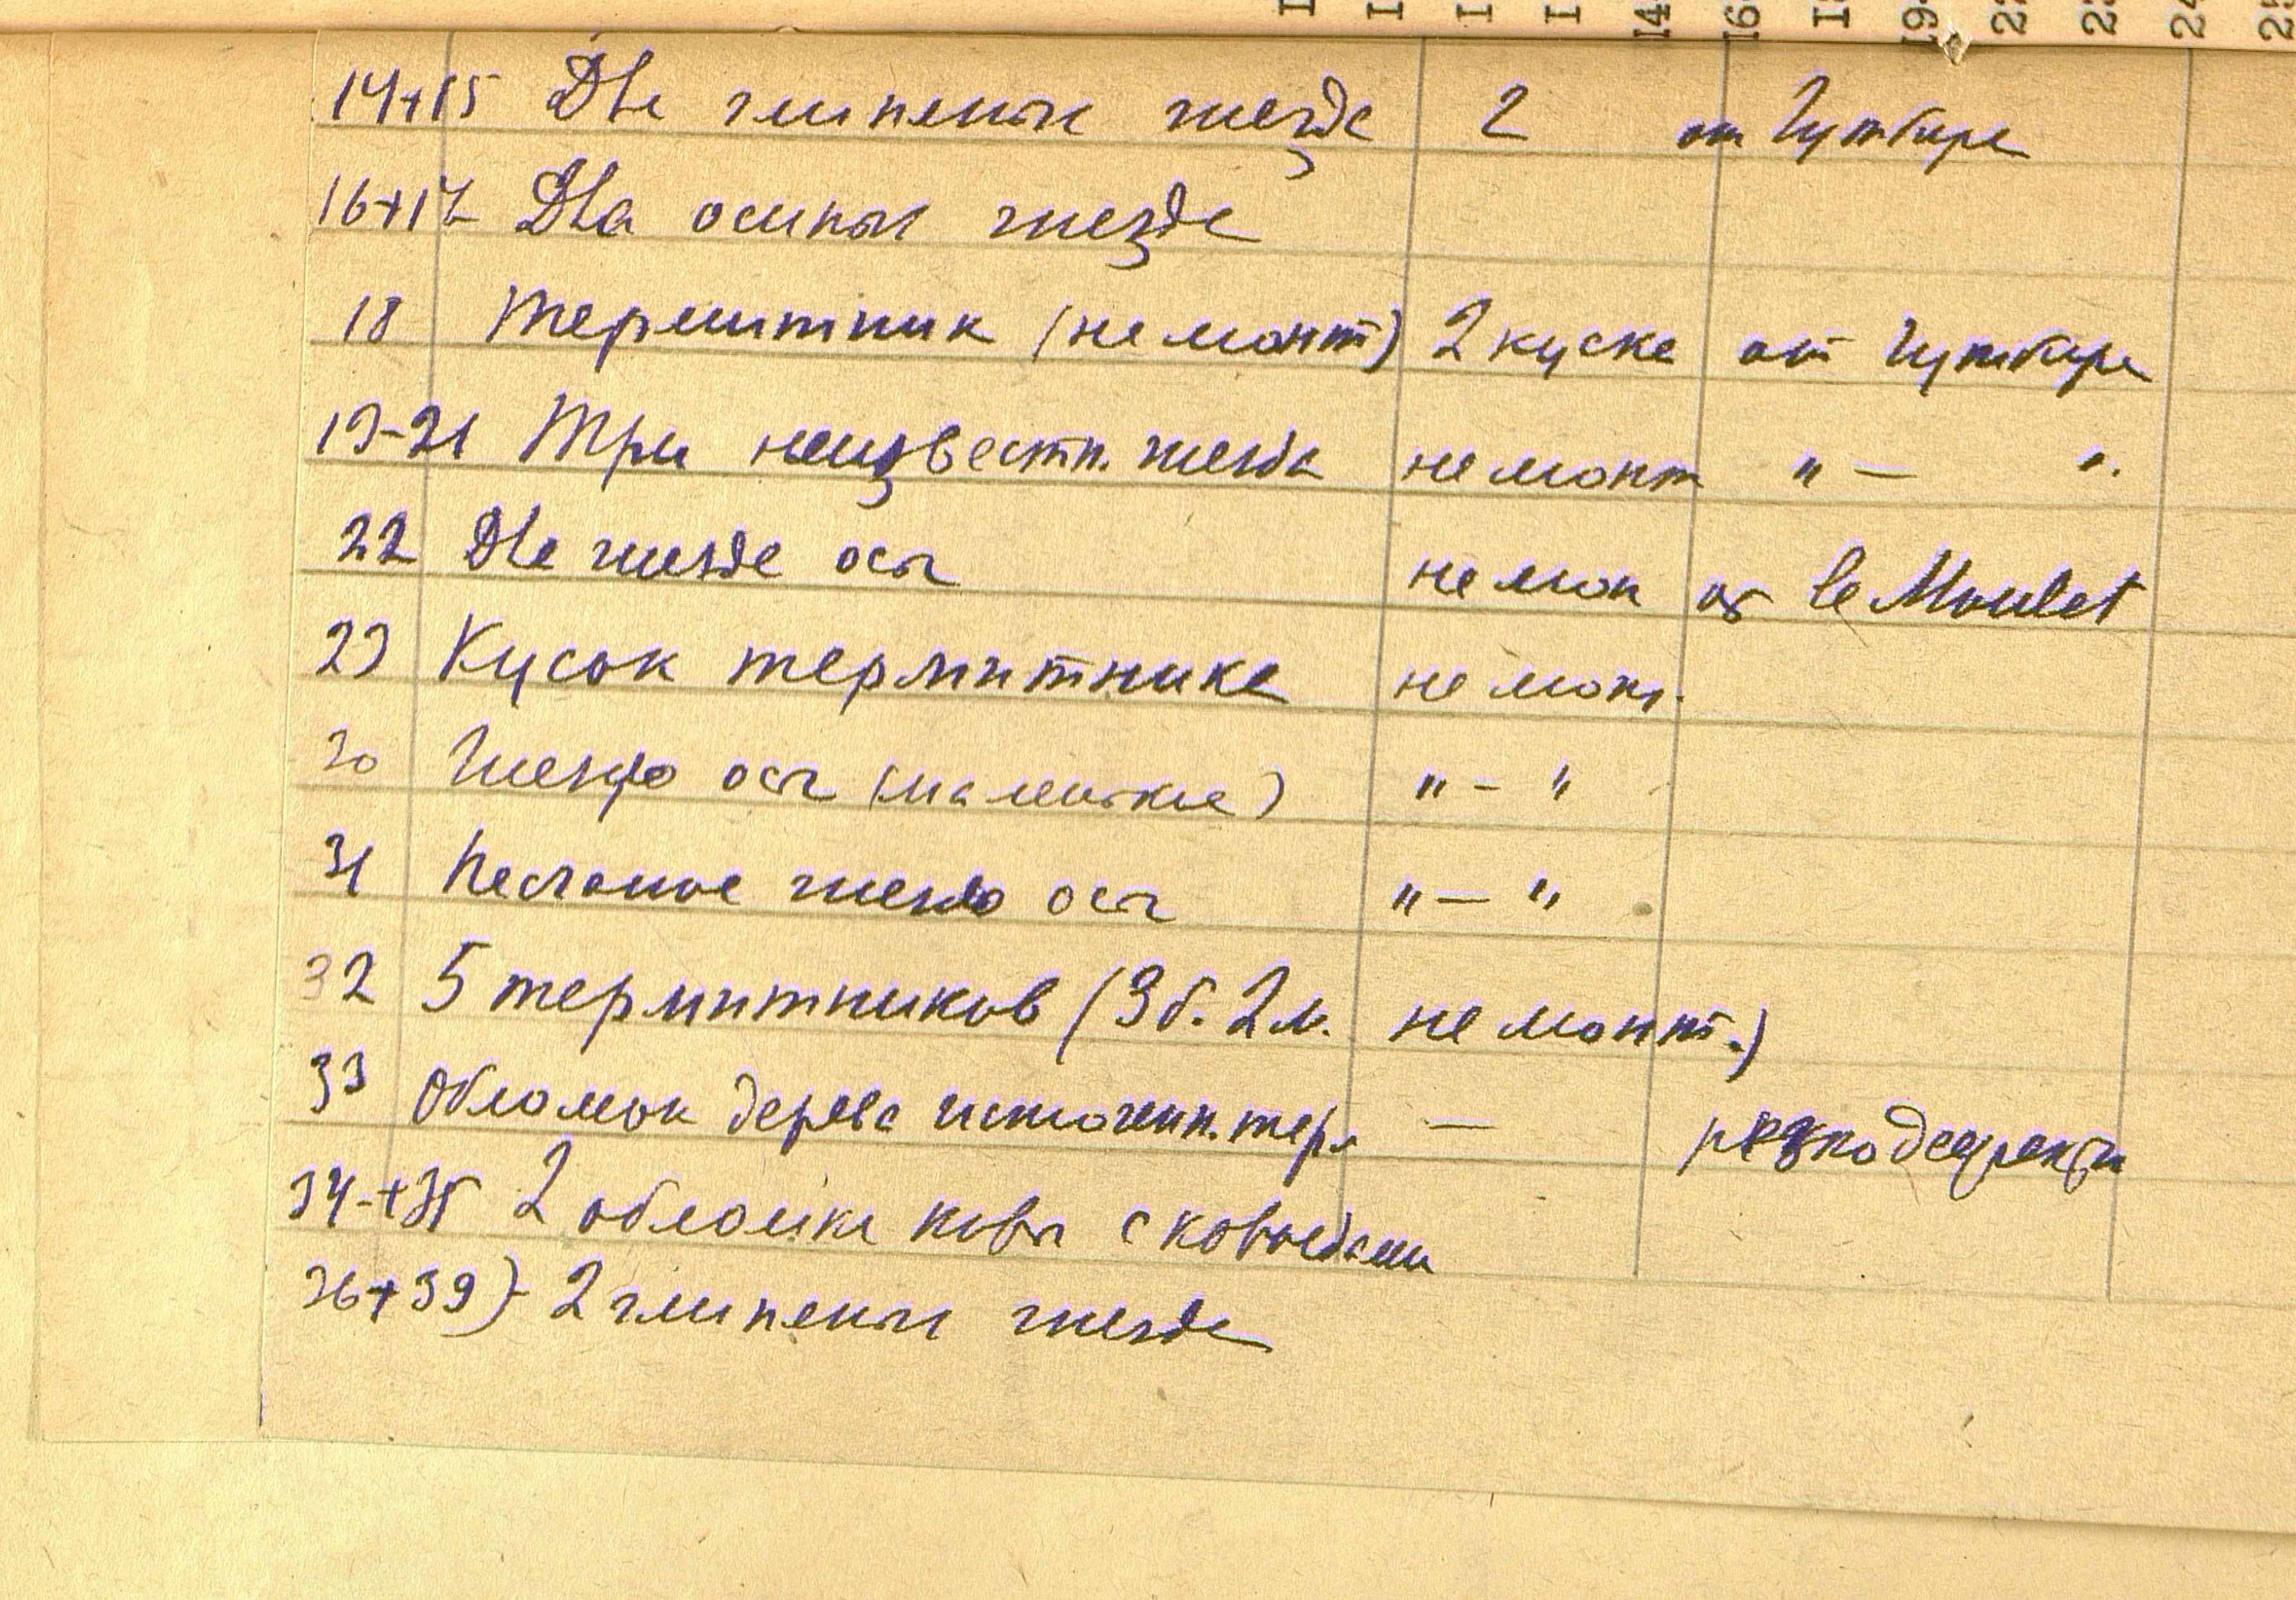 I I I I 14 16 I 19 22 23 24 25
14+15 Два глиняных гнезда 2 от Гутбира
16+17 Два осиных гнезда
18 Термитник (не монт) 2 куска от Гутбира
19-21 Три неизвестн. гнезда не монт " — ".
22 Два гнезда ос не мон от le Moulet
23 Кусок термитника не монт.
30 Гнездо ос (маленькое) " - "
31 Песчаное гнездо ос " — "
32 5 термитников (3б. 2м. не монт.)
33 Обломок дерева источенн. терм —
34-+35 2 обломка коры с короедами
36+39) - 2 глиняных гнезда